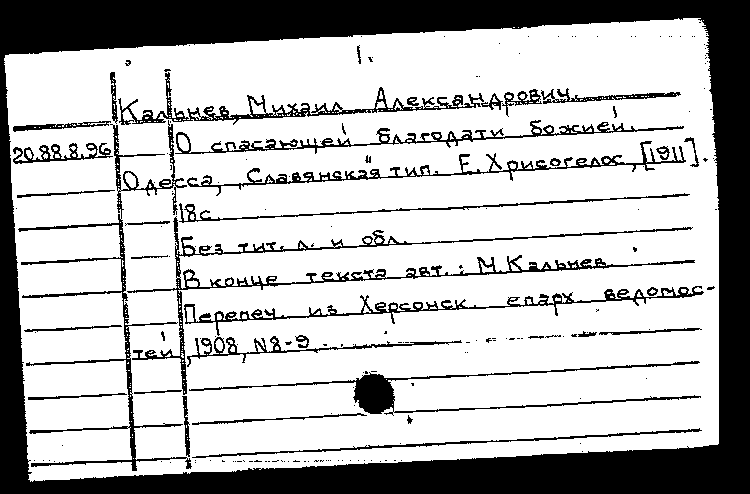 1.
Кальнев, Михаил Александрович.
20.88.8.96 О спасающей благодати божией.
Одесса, „Славянская" тип. Е. Хрисогелос, [1911].
18с.
Без тит. л. и обл.
В конце текста авт.: М. Кальнев
Перепеч. из Херсонск. епарх. ведомос-
тей, 1908, N8-9.